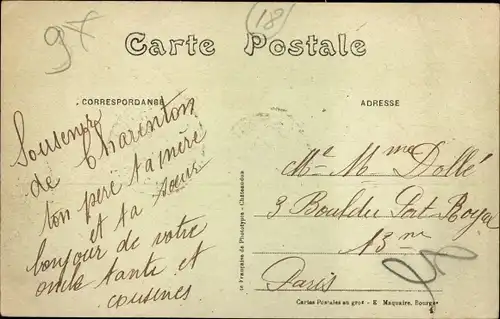 97
18
Carte Postale
CORRESPONDANCE
ADRESSE
Souvenir
de Charenton
ton pere ta mère
et ta sœur
bonjour de votre
oncle tante et
cousines
Mr Mme Dollé
3 Bould du Port-Royal
13me
Paris
ie Française de Phototypie - Châteaudun
Cartes Postales en gros - E. Maquaire, Bourges